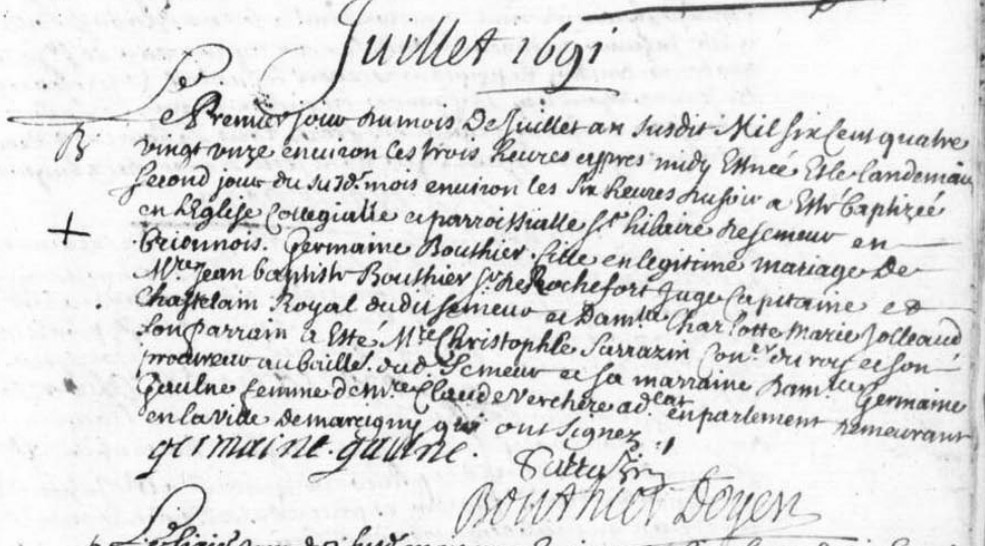 Juillet 1691
Le
B
Le Premier jour du mois De Juillet an susdit Mil six Cent quatre
vingt unze environ les trois heures apres midy Est née Et le landemain
second jour du susd. mois environ les six heures du soir a Esté baptizée
en l'Eglise Collegialle et parroissialle St hilaire de semeur en
+
Brionnois. Germaine Bouthier fille en legitime mariage De
Mre Jean baptiste Bouthier Sr de Rochefort Juge Capitaine et
Chastelain Royal dudit semeur et Damlle Charlotte Marie Jolleaud
son parrain a Esté Mre Christophle Sarrazin Conr du roy et son
procureur au baille. dud. Semeur et sa marraine Damlle Germaine
Gaulne femme de mre Claude Verchere adcat en parlement demeurant
en la ville de marcigny qui ont signez
germaine gaulne.
Sarrazin
Bouthier Doyen